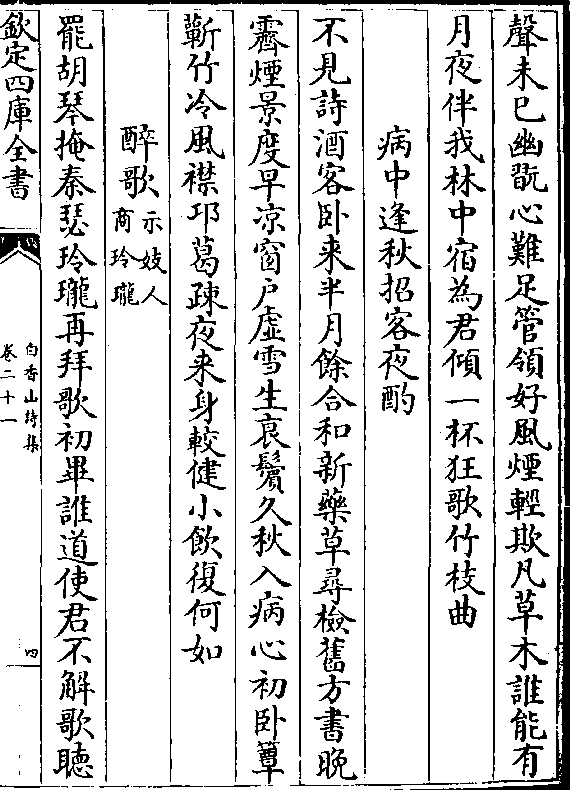 聲未已幽翫心難足管領好風煙輕欺凡草木誰能有
月夜伴我林中宿為君傾一杯狂歌竹枝曲
病中逢秋招客夜酌
不見詩酒客卧来半月餘合和新藥草尋檢舊方書晚
霽煙景度早凉窗戶虛雪生衰鬢久秋入病心初卧簟
蘄竹冷風襟邛葛疎夜来身較健小飲復何如
醉歌示妓人商玲瓏
罷胡琴掩秦瑟玲瓏再拜歌初畢誰道使君不解歌聽
欽定四庫全書
白香山詩集
卷二十一
四